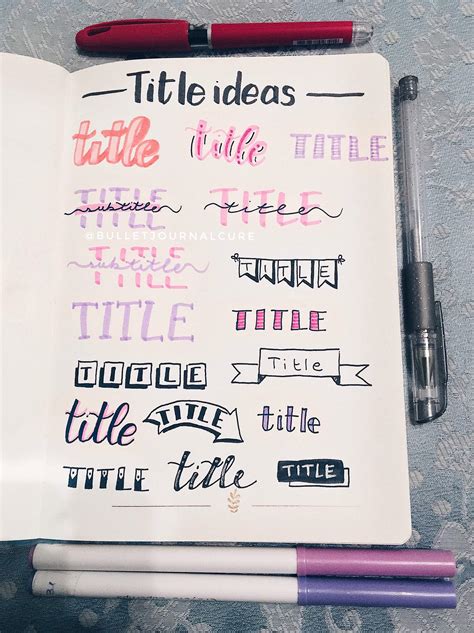 Title ideas
title
title
title
TITLE
TITLE
subtitle
TITLE
TITLE
title
@BULLETJOURNALCURE
TITLE
subtitle
TITLE
TITLE
TITLE
TITLE
TITLE
Title
title
TITLE
title
TITLE
title
TITLE